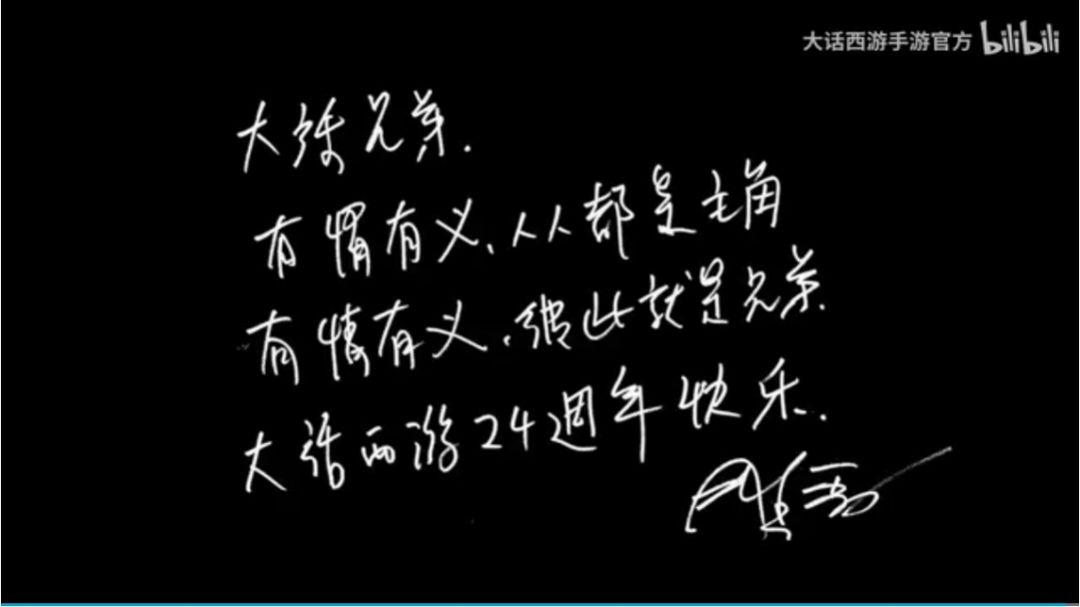 大话西游手游官方 bilibili
大话兄弟.
有情有义、人人都是主角
有情有义、彼此就是兄弟.
大话西游24週年快乐.